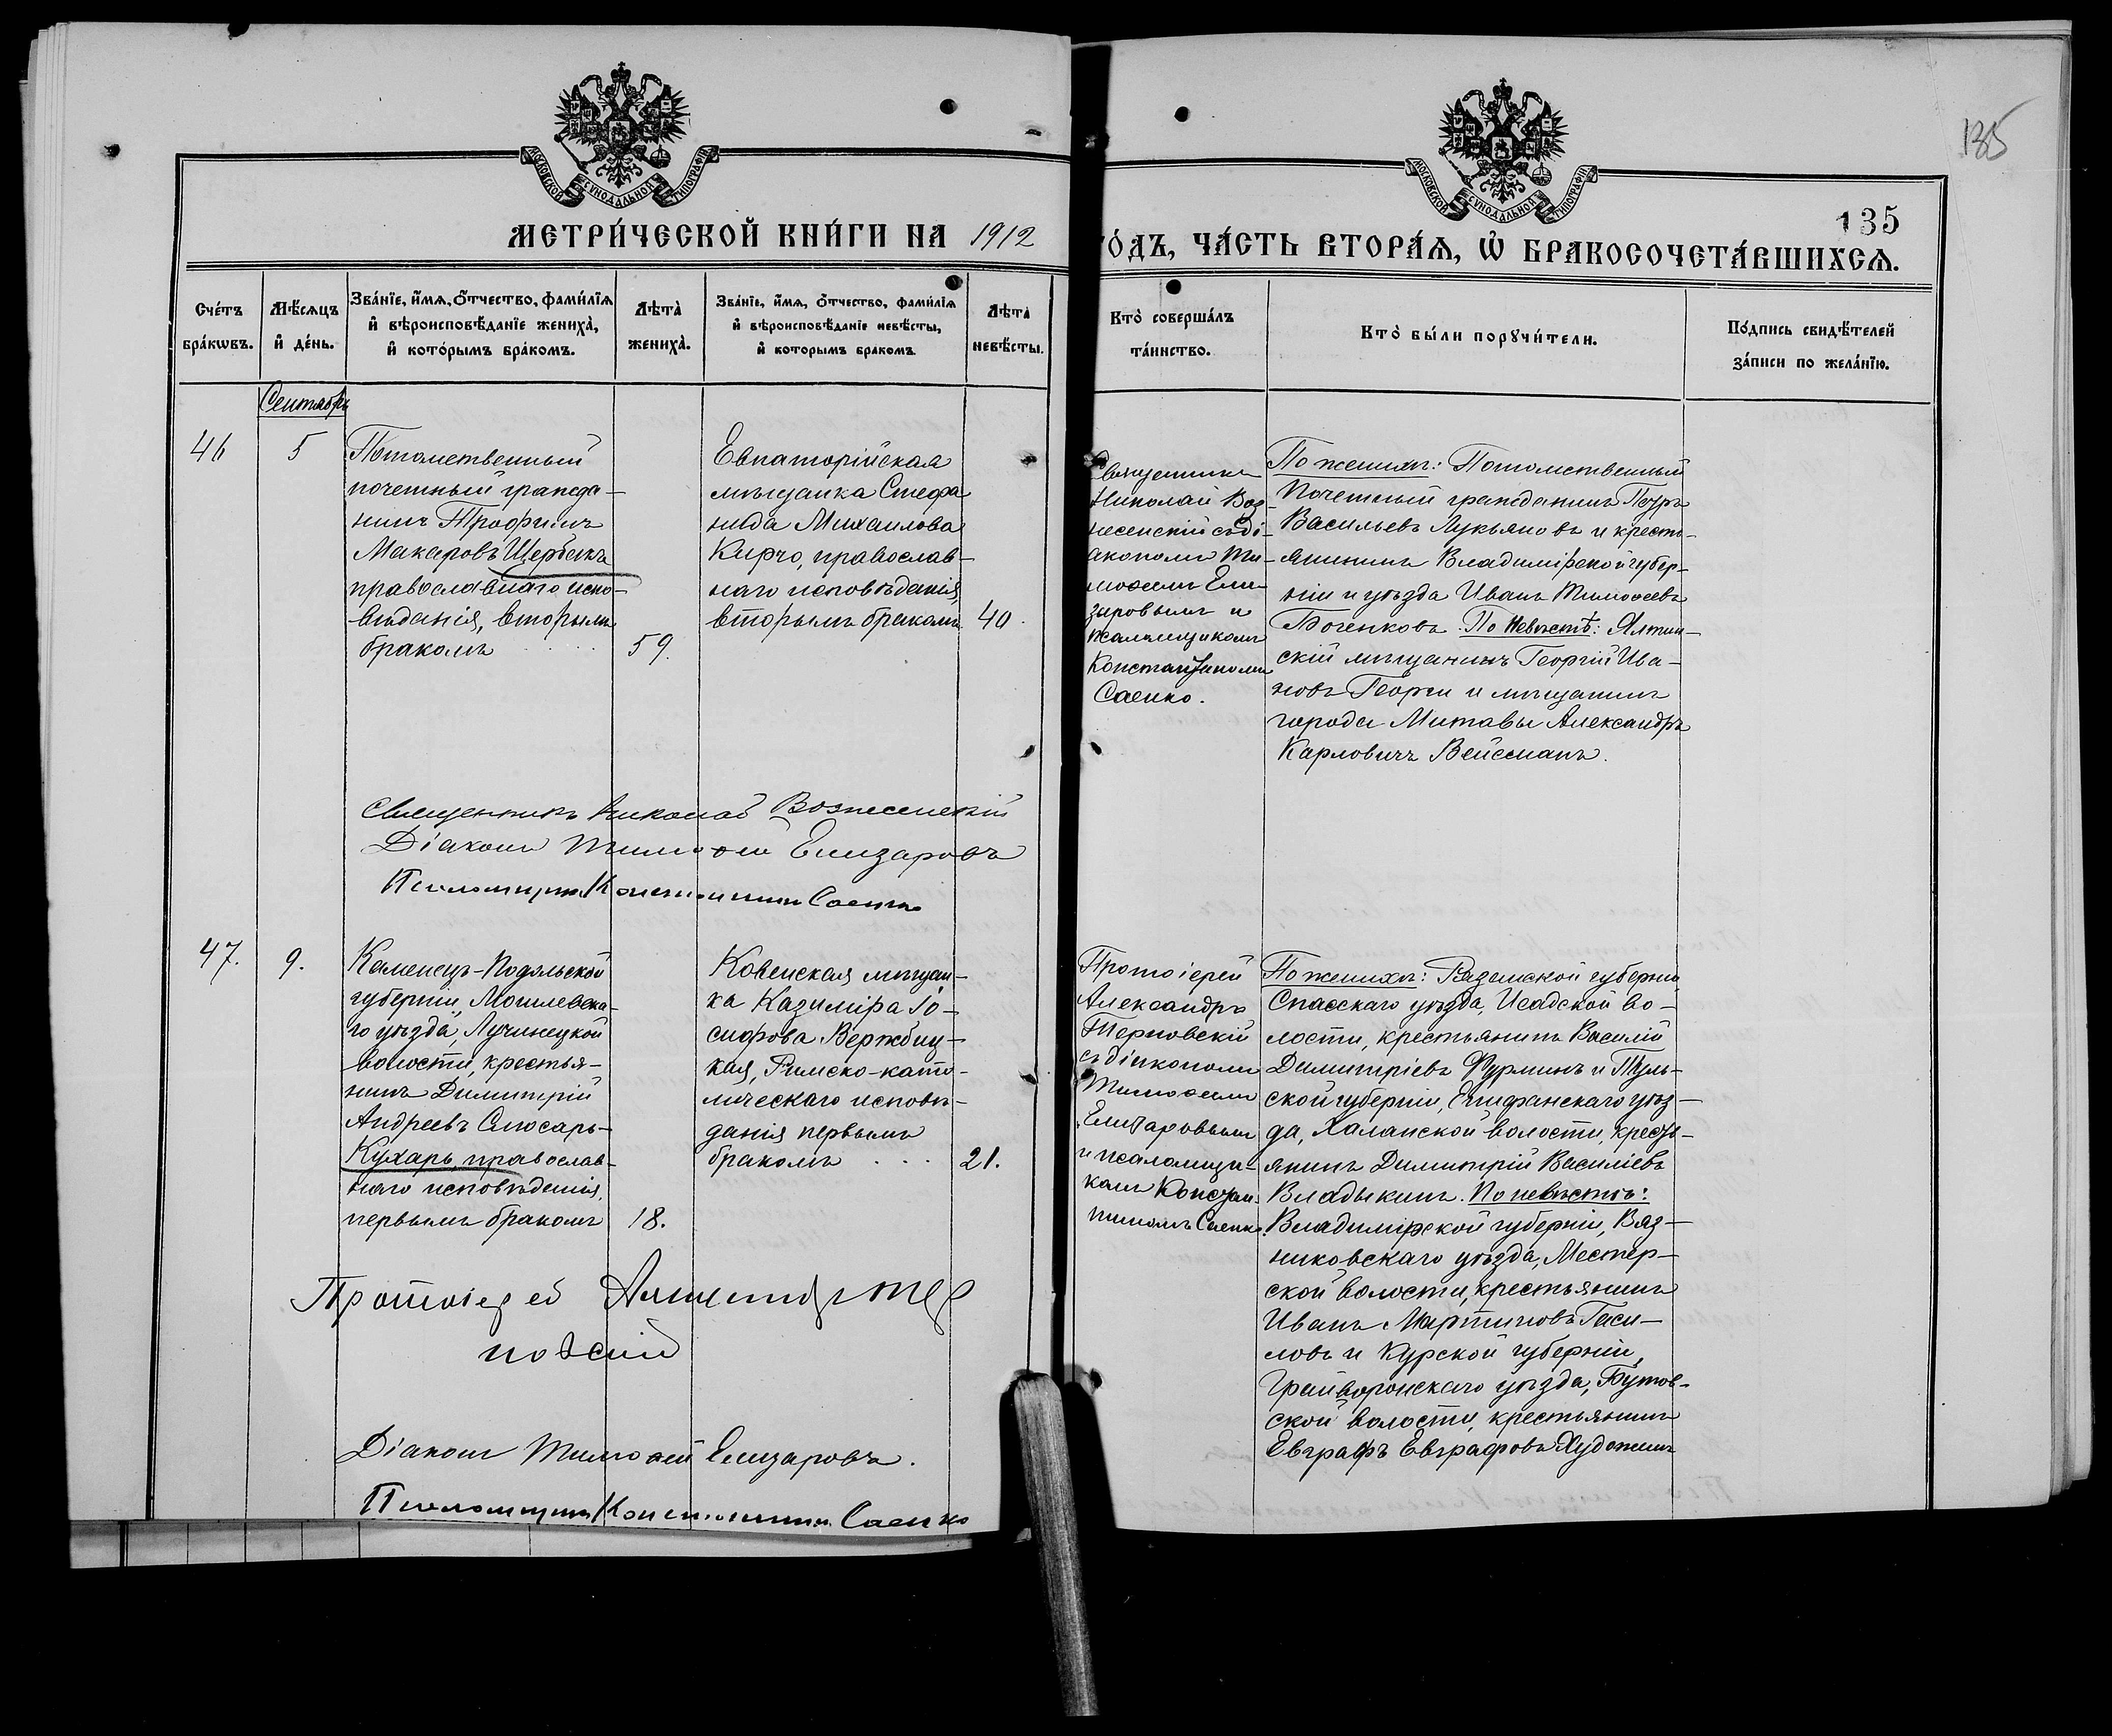 135
135
МОСКОВСКОЙ СѴНОДАЛЬНОЙ ТИПОГРАФІИ
МОСКОВСКОЙ СѴНОДАЛЬНОЙ ТИПОГРАФІИ
МЕТРИ́ЧЕСКОЙ КНИ́ГИ НА 1912
ГО́ДЪ, ЧА́СТЬ ВТОРА́Ѧ, Ѡ҆ БРАКОСОЧЕТА́ВШИХСѦ.
Сче́тъ
бра́кѡвъ.
Мѣ́сѧцъ
и҆ де́нь.
Зва́нїе, и҆́мѧ, о҆́тчество, фами́лїѧ
и҆ вѣроисповѣ́данїе жениха̀,
и҆ кото́рымъ бра́комъ.
Лѣта̀
жениха̀.
Зва́нїе, и҆́мѧ, о҆́тчество, фами́лїѧ
и҆ вѣроисповѣ́данїе невѣ́сты,
и҆ которымъ бракомъ.
Лѣта̀
невѣ́сты.
Кто̀ соверша́лъ
та́инство.
Кто̀ бы́ли порꙋчи́тели.
По́дпись свидѣ́телей
за́писи по жела́нїю.
Сентябрь
46
5
Потомственный
почетный гражда-
нинъ Трофимъ
Макаровъ Щербакъ
православнаго испо-
вѣданія, вторымъ
бракомъ
59.
Евпаторійская
мѣщанка Стефа
нида Михаилова
Кирчо, православ-
наго исповѣданія,
вторымъ бракомъ
40.
Священникъ
Николай Воз-
несенскій съ ді-
акономъ Ти-
моѳеемъ Ели-
заровымъ и
псаломщикомъ
Константиномъ
Саенко.
По женихѣ: Потомственный
Почетный гражданинъ Петръ
Васильевъ Лукьяновъ и кресть-
янинъ Владимірской губер-
ніи и уѣзда Иванъ Тимоѳеевъ
Боченковъ. По невѣстѣ: Ялтин-
скій мѣщанинъ Георгій Ива-
новъ Георги и мѣщанинъ
города Митавы Александръ
Карловичъ Вейсманъ.
Священникъ Николай Вознесенскій
Діаконъ Тимоѳей Елизаровъ
Псаломщикъ Константинъ Саенко
47.
9.
Каменецъ-Подольской
губерніи, Могилевска-
го уѣзда, Лучинецкой
волости, крестья-
нинъ Димитрій
Андреевъ Слюсарь-
Кухарь, православ-
наго исповѣданія,
первымъ бракомъ
18.
Ковенская мѣщан-
ка Казиміра Іо-
сифова Вержбиц-
кая, Римско-като-
лическаго исповѣ-
данія первымъ
бракомъ
21.
Протоіерей
Александръ
Терновскій
съ діакономъ
Тимоѳеемъ
Елизаровымъ
и псаломщи-
комъ Констан-
тиномъ Саенко.
По женихѣ: Рязанской губерніи
Спасскаго уѣзда, Исадской во-
лости, крестьянинъ Василій
Димитріевъ Фурминъ и Туль-
ской губерніи, Епифанскаго уѣз-
да, Халанской волости, кресть-
янинъ Димитрій Василіевъ
Владыкинъ. По невѣстѣ:
Владимірской губерніи, Вяз-
никовскаго уѣзда, Местер-
ской волости, крестьянинъ
Иванъ Мартиновъ Гаси-
ловъ и Курской губерніи,
Грайворонскаго уѣзда, Бутов-
ской волости, крестьянинъ
Евграфъ Евграфовъ Художинъ
Протоіерей Александръ Тер
новскій
Діаконъ Тимоѳей Елизаровъ.
Псаломщикъ Константинъ Саенко